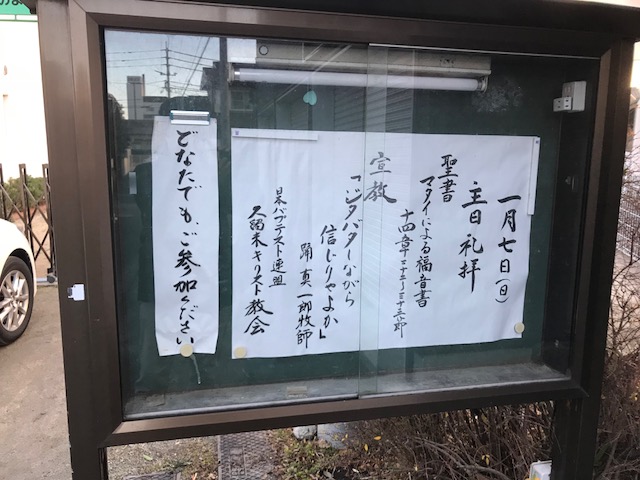 一月七日(日)
主日礼拝
聖書
マタイによる福音書
十四章二十二~三十三節
宣教
「ジタバタしながら
信じりゃよか」
踊真一郎牧師
日本バプテスト連盟
久留米キリスト教会
どなたでも、ご参加ください